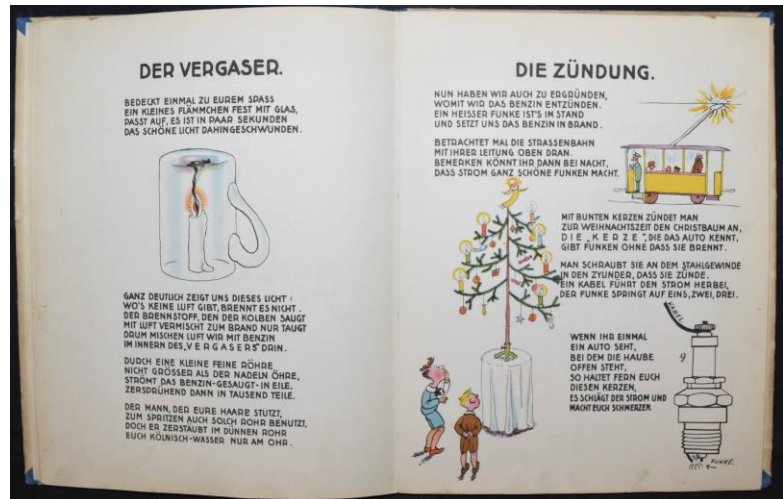 DER VERGASER.
BEDECKT EINMAL ZU EUREM SPASS
EIN KLEINES FLÄMMCHEN FEST MIT GLAS,
PASST AUF, ES IST IN PAAR SEKUNDEN
DAS SCHÖNE LICHT DAHINGESCHWUNDEN.
GANZ DEUTLICH ZEIGT UNS DIESES LICHT:
WO'S KEINE LUFT GIBT, BRENNT ES NICHT.
DER BRENNSTOFF, DEN DER KOLBEN SAUGT
MIT LUFT VERMISCHT ZUM BRAND NUR TAUGT
DRUM MISCHEN LUFT WIR MIT BENZIN
IM INNERN DES „VERGASERS" DRIN.
DURCH EINE KLEINE FEINE RÖHRE
NICHT GRÖSSER ALS DER NADELN ÖHRE,
STRÖMT DAS BENZIN-GESAUGT-IN EILE.
ZERSPRÜHEND DANN IN TAUSEND TEILE.
DER MANN, DER EURE HAARE STUTZT,
ZUM SPRITZEN AUCH SOLCH ROHR BENUTZT,
DOCH ER ZERSTÄUBT IM DÜNNEN ROHR
EUCH KÖLNISCH-WASSER NUR AM OHR.
DIE ZÜNDUNG.
NUN HABEN WIR AUCH ZU ERGRÜNDEN,
WOMIT WIR DAS BENZIN ENTZÜNDEN.
EIN HEISSER FUNKE IST'S IM STAND
UND SETZT UNS DAS BENZIN IN BRAND.
BETRACHTET MAL DIE STRASSENBAHN
MIT IHRER LEITUNG OBEN DRAN.
BEMERKEN KÖNNT IHR DANN BEI NACHT,
DASS STROM GANZ SCHÖNE FUNKEN MACHT.
MIT BUNTEN KERZEN ZÜNDET MAN
ZUR WEIHNACHTSZEIT DEN CHRISTBAUM AN,
DIE „KERZE", DIE DAS AUTO KENNT,
GIBT FUNKEN OHNE DASS SIE BRENNT.
MAN SCHRAUBT SIE AN DEM STAHLGEWINDE
IN DEN ZYLINDER, DASS SIE ZÜNDE.
EIN KABEL FÜHRT DEN STROM HERBEI,
DER FUNKE SPRINGT AUF EINS, ZWEI, DREI.
WENN IHR EINMAL
EIN AUTO SEHT,
BEI DEM DIE HAUBE
OFFEN STEHT,
SO HALTET FERN EUCH
DIESEN KERZEN,
ES SCHLÄGT DER STROM UND
MACHT EUCH SCHMERZEN.
KABEL
FUNKE.